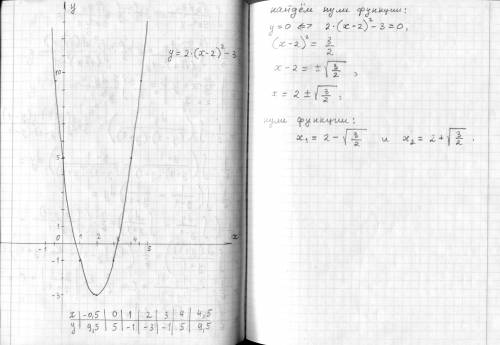 y
y=2·(x-2)²-3
10
5
-1 0 1 2 3 4 5 x
-3
x -0,5 0 1 2 3 4 4,5
y 9,5 5 -1 -3 -1 5 9,5
найдём нули функции:
y=0 <=> 2·(x-2)²-3=0,
(x-2)² = 3/2
x-2 = ±√(3/2),
x = 2 ± √(3/2),
нули функции:
x₁ = 2 - √(3/2) и x₂ = 2 + √(3/2).